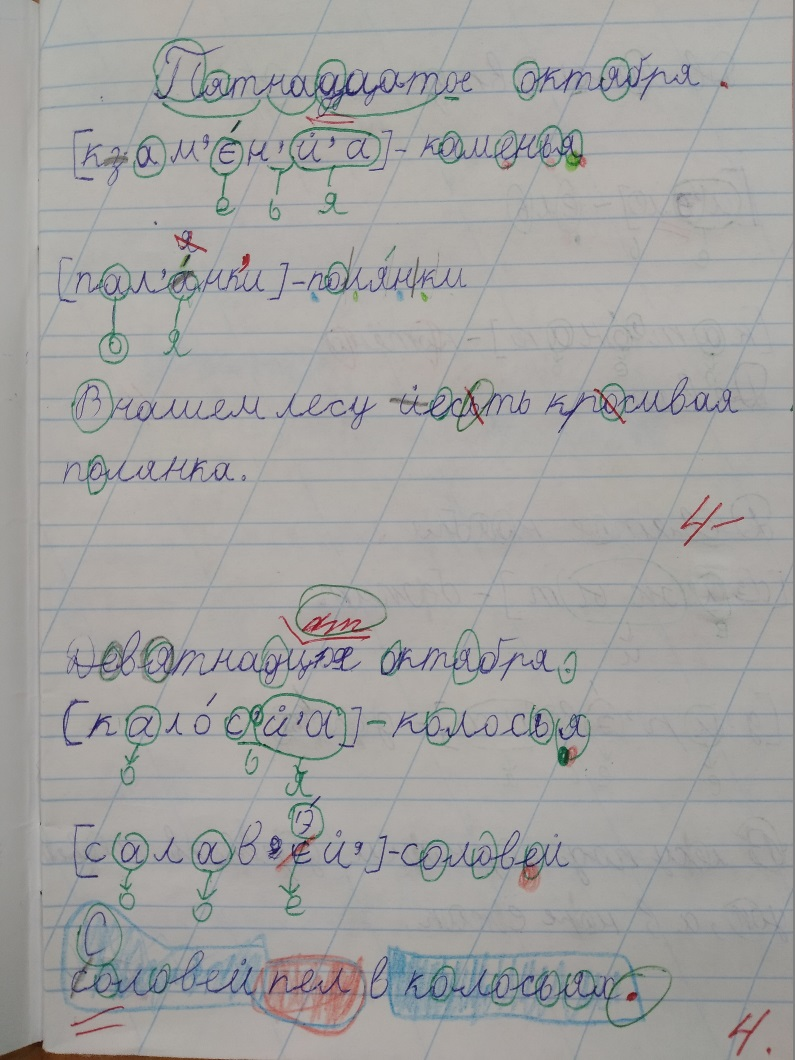 Пятнадцатое октября.
[кзам'éн'й'а]-каменья
е ь я
я
[пал'áнк'и]-полянки
о я
В нашем лесу йесьть кросивая
полянка.
4-
ат
Девятнадцте октября.
[калóс'й'а]-колосья
о ь я
Э́
[салав'éй']-соловей
о о е
С
соловей пел в колосьях.
4.